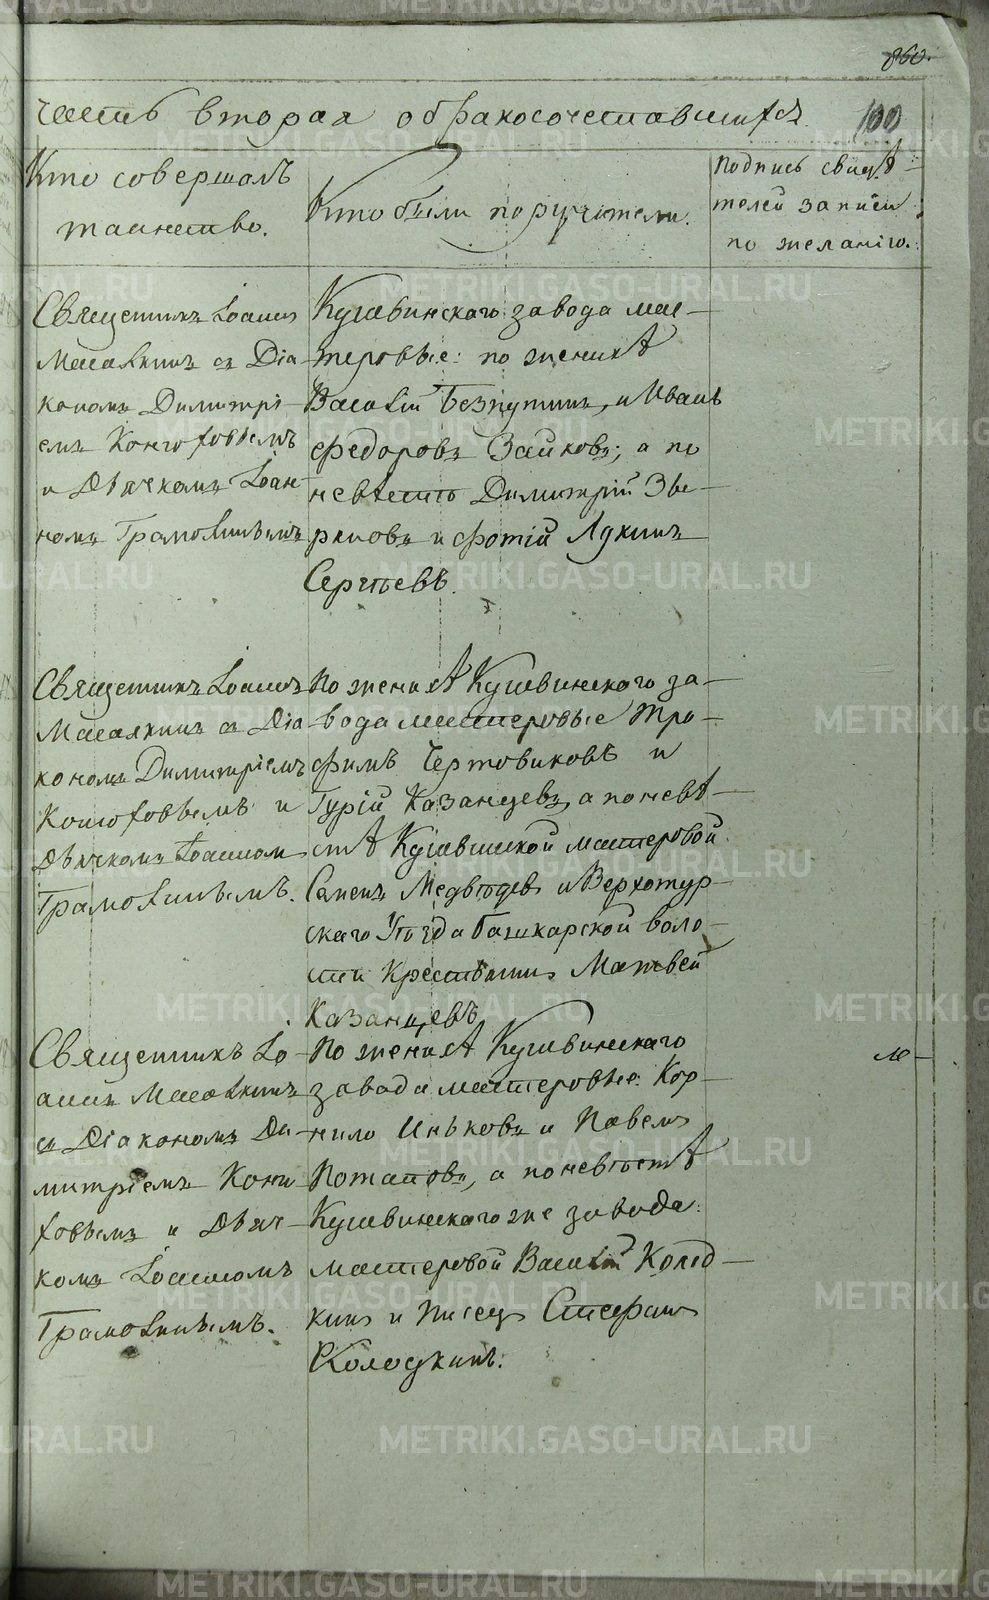 860.
100
часть вторая о бракосочетавшихся
Кто совершалъ
таинство.
Кто были поручители.
Подпись свидѣ-
телей записи
по желанію.
Священникъ Іоаннъ
съ Діа-
кономъ Димитрі-
емъ
и Дьячкомъ Іоан-
номъ Грамолинымъ
Кушвинскаго завода мас-
теровые: по женихѣ
Василій Безпутинъ, и Иванъ
Федоровъ Зайковъ; а по
невѣстѣ Димитрій Зве-
ревъ и Фотій Лукинъ
Сергѣевъ.
Священникъ Іоаннъ
съ Діа-
кономъ Димитріемъ
и
Дьячкомъ Іоанномъ
Грамолинымъ.
По женихѣ Кушвинскаго за-
вода мастеровые Тро-
фимъ Чертовиковъ и
Гурій Казанцевъ, а по невѣ-
стѣ Кушвинской мастеровой
Семенъ Медвѣдевъ и Верхотур-
скаго Уѣзда Башкарской воло-
сти Крестьянинъ Матвей
Казанцевъ
Священникъ Іо-
аннъ
съ Діакономъ Ди-
митріемъ
и Дьяч-
комъ Іоанномъ
Грамолинымъ.
По женихѣ Кушвинскаго
завода мастеровые: Кор-
нило Иньковъ и Павелъ
Потаповъ, а по невѣстѣ
Кушвинскаго же завода
мастеровой Василій
и Писецъ Стефанъ
Колодкинъ.
METRIKI.GASO-URAL.RU